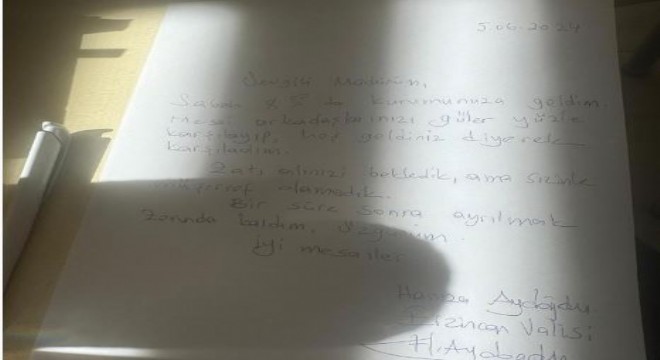 5.06.2024
Sevgili Müdürüm,
Sabah 8 de kurumunuza geldim.
Mesai arkadaşlarınızı güler yüzle
karşılayıp, hoş geldiniz diyerek
karşıladım.
Zatı alinizi bekledik, ama sizinle
müşerref olamadık.
Bir süre sonra ayrılmak
zorunda kaldım. Üzgünüm.
İyi mesailer
Hamza Aydoğdu
Erzincan Valisi
H.Aydoğdu